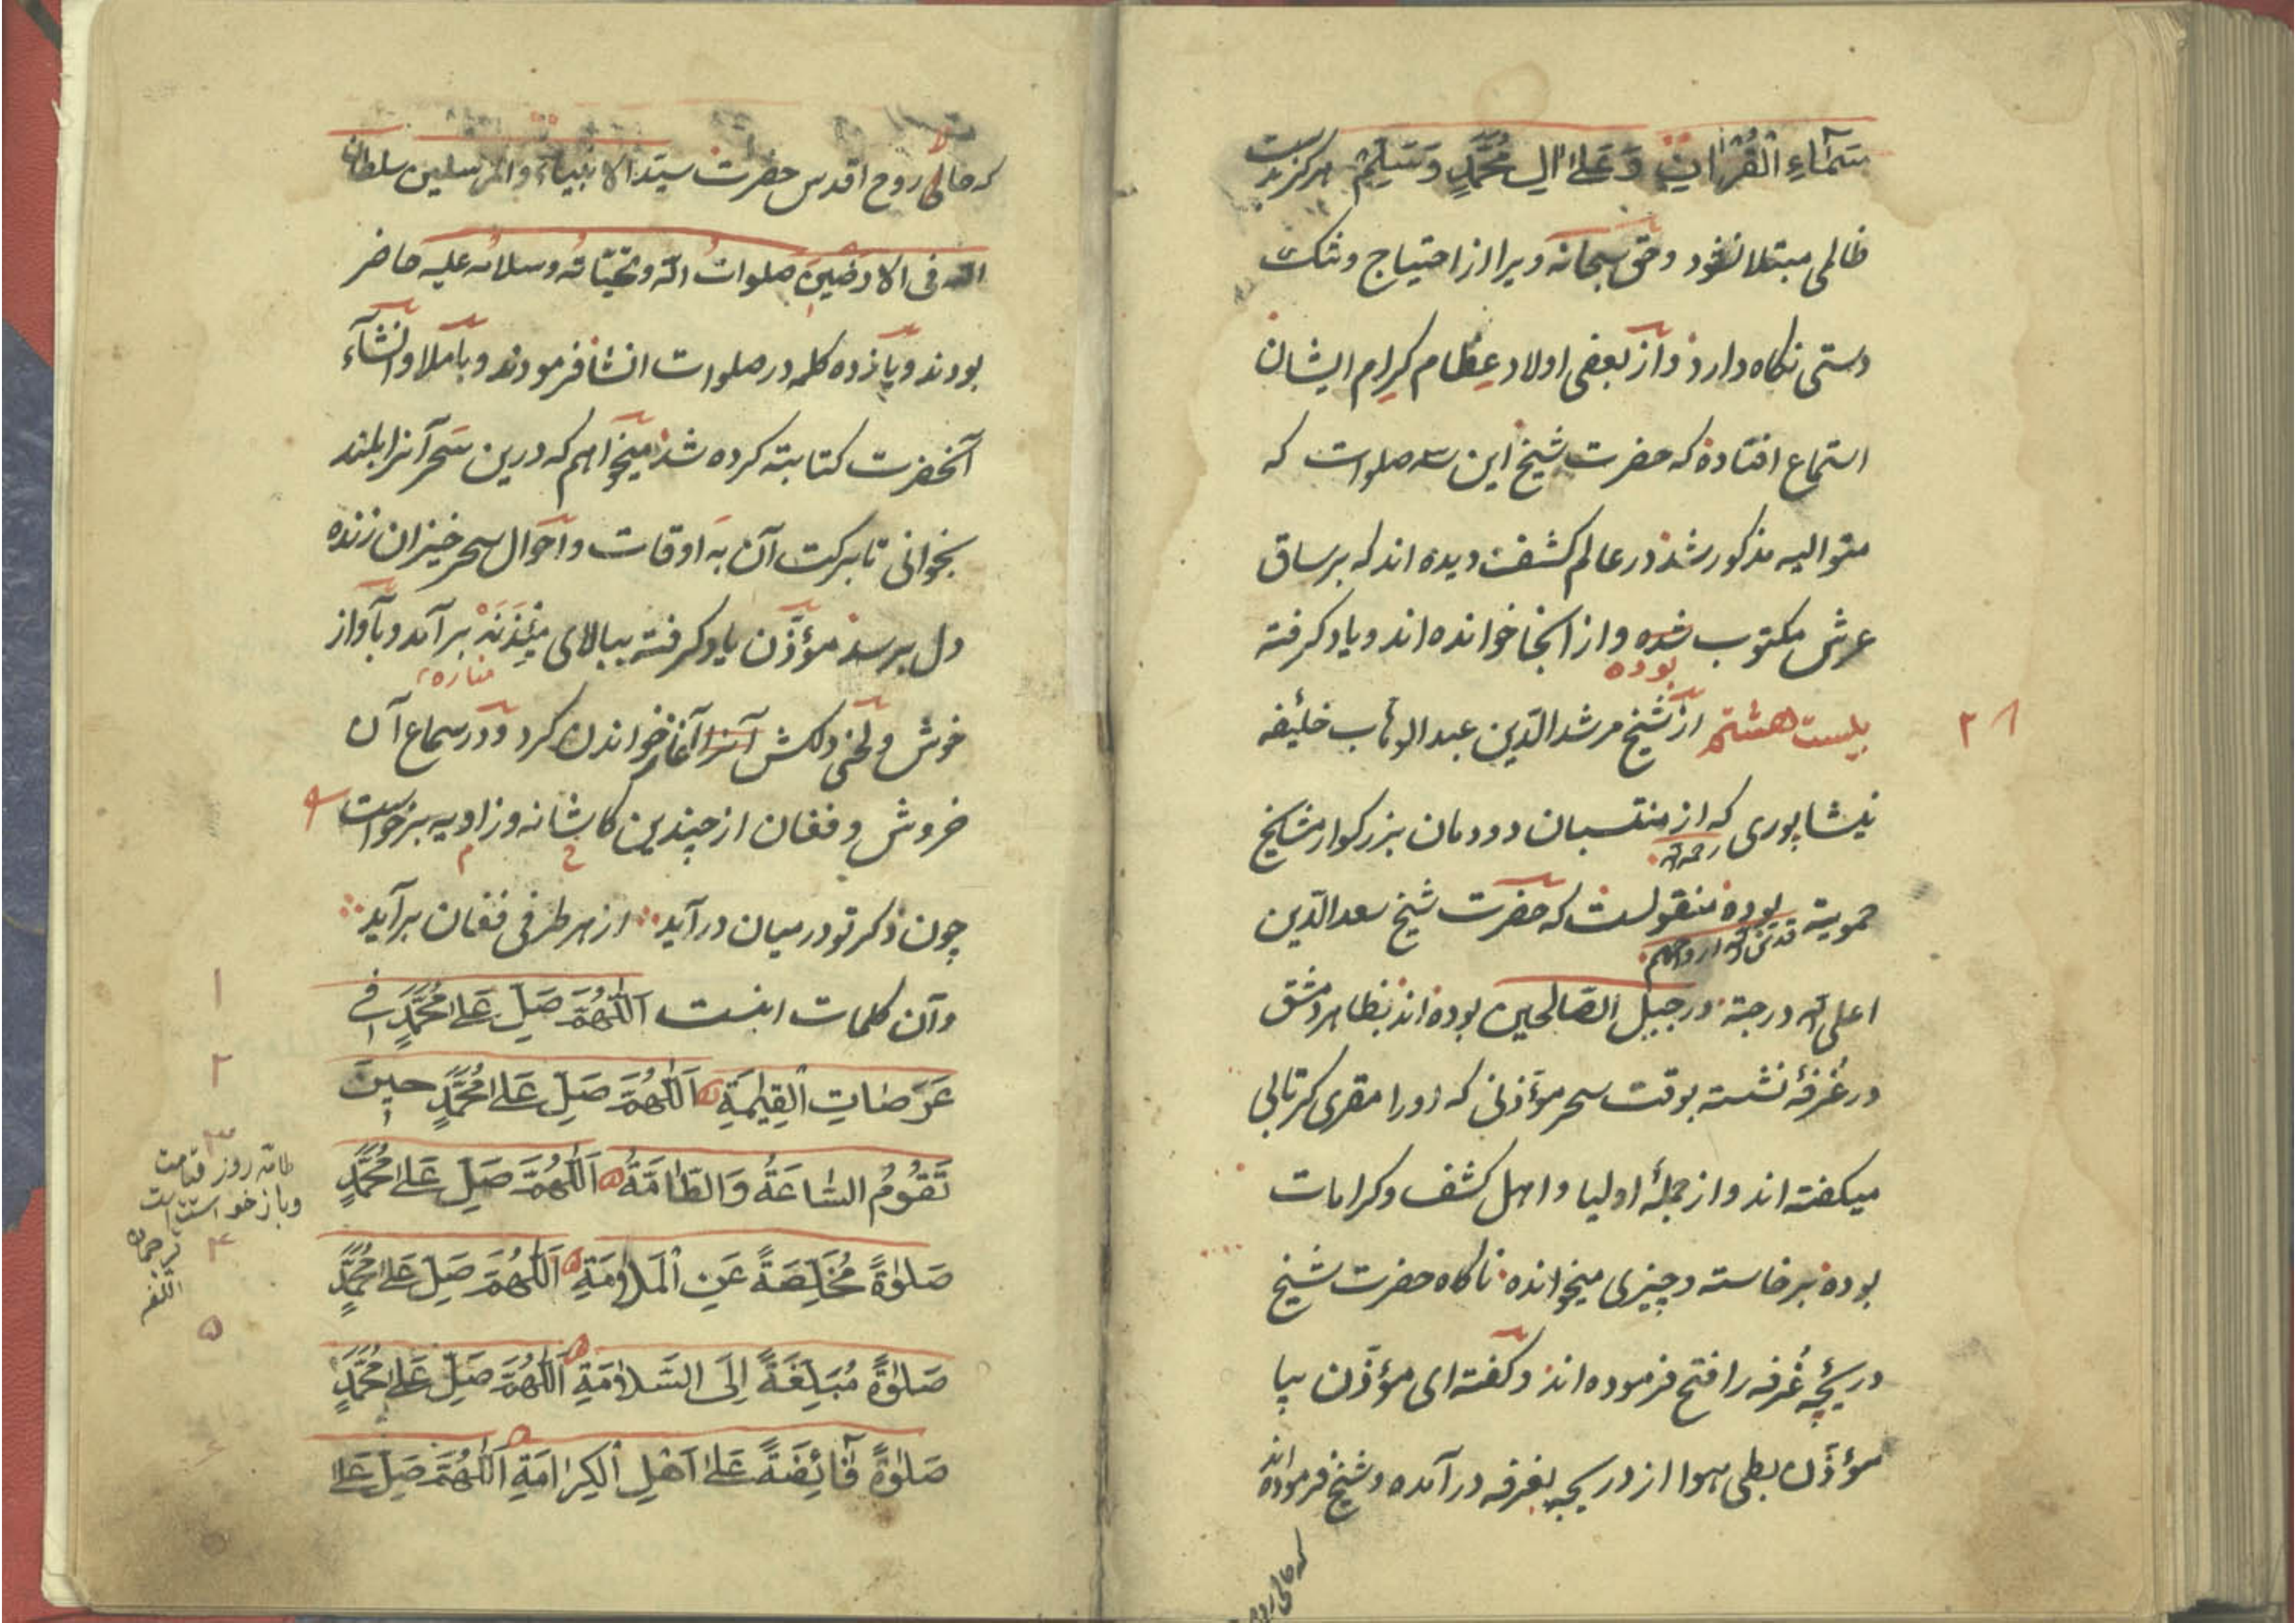 سَمَآءِ الْقُرْاٰنِ وَعَلٰى اٰلِ مُحَمَّدٍ وَسَلِّمْ هرکز بدست
ظالمی مبتلا نشود و حق سبحانه ویرا از احتیاج و تنک
دستی نکاه دارد و از بعضی اولاد عِظام کِرام ایشان
استماع افتاده که حضرت شیخ این سه صلوات که
متوالیه مذکور شد در عالم کشف دیده اند که بر ساق
عرش مکتوب شده و از انجا خوانده اند و یاد کرفته
بوده
۲۸
بیست هشتم از شیخ مرشد الدّین عبد الوهّاب خلیفه
نیشاپوری که از منتسبان دودمان بزرکوار مشایخ
رحمه الله
حمویه بوده منقولست که حضرت شیخ سعد الدّین
قدّس الله ارواحهم
اعلی الله درجته در جبل الصّالحین بوده اند بظاهر دمشق
در غُرفهٔ نشسته بوقت سحر مؤذنی که او را مقری کرتالی
میکفته اند و از جملهٔ اولیا و اهل کشف و کرامات
بوده برخاسته و چیزی میخوانده ناکاه حضرت شیخ
دریچهٔ غُرفه را فتح فرموده اند و کفته ای مؤذّن بیا
مؤذّن بطی هوا از دریچه بغرفه در آمده و شیخ فرموده اند
که حالی روح
که حالی روح اقدس حضرت سیّد الانبیاء والمرسلین سلطان
الله فی الارضین صلوات الله و تحیّاته و سلامه علیه حاضر
بودند و پانزده کلمه در صلوات انشا فرمودند و باملا و انشآء
آنحضرت کتابته کرده شد میخواهم که درین سَحَر آنرا بلند
بخوانی تا برکت آن به اوقات و احوال سحرخیزان زنده
دل برسد مؤذّن یاد کرفته ببالای مِئْذَنَهْ بر آمد و بآواز
مناره
خوش و لحنی دلکش آنرا آغاز خواندن کرد و در سماع آن
خروش و فغان از چندین کاشانه و زاویه برخواست
چون ذکر تو در میان در آید از هر طرفی فغان بر آید
وآن کلمات اینست اَللّٰهُمَّ صَلِّ عَلٰى مُحَمَّدٍ فِى
۱
عَرَصَاتِ الْقِيٰمَةِ اَللّٰهُمَّ صَلِّ عَلٰى مُحَمَّدٍ حِينَ
۲
تَقُوُمُ السَّاعَةُ وَالطَّامَّةُ اَللّٰهُمَّ صَلِّ عَلٰى مُحَمَّدٍ
۳
طامّه روز قیامت
و بازخواستست
صَلٰوةً مُخَلِّصَةً عَنِ الْمَلَامَةِ اَللّٰهُمَّ صَلِّ عَلٰى مُحَمَّدٍ
۴
صَلٰوةً مُبَلِّغَةً اِلَى السَّلَامَةِ اَللّٰهُمَّ صَلِّ عَلٰى مُحَمَّدٍ
۵
صَلٰوةً فَآئِضَةً عَلٰى اَهْلِ الْكِرَامَةِ اَللّٰهُمَّ صَلِّ عَلٰى